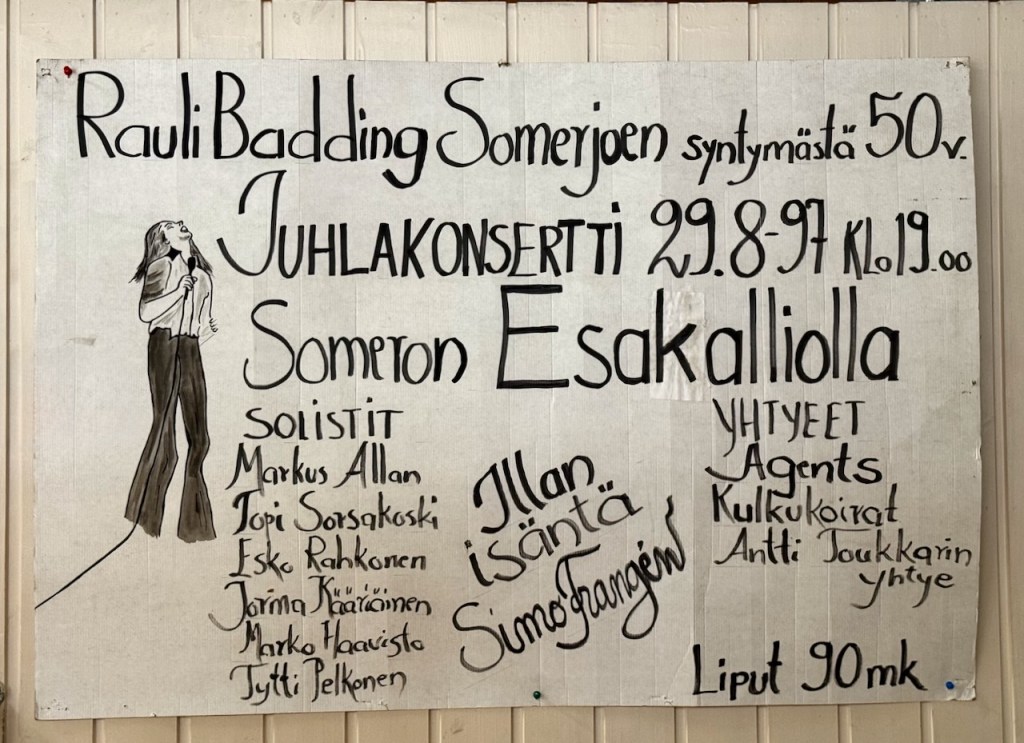 Rauli Badding Somerjoen syntymästä 50v.
JUHLAKONSERTTI 29.8-97 KLo 19.00
Someron Esakalliolla
SOLISTIT
Markus Allan
Topi Sorsakoski
Esko Rahkonen
Jorma Kääriäinen
Marko Haavisto
Tytti Pelkonen
Illan
isäntä
Simo Frangén
YHTYEET
Agents
Kulkukoirat
Antti Toukkarin
yhtye
Liput 90mk